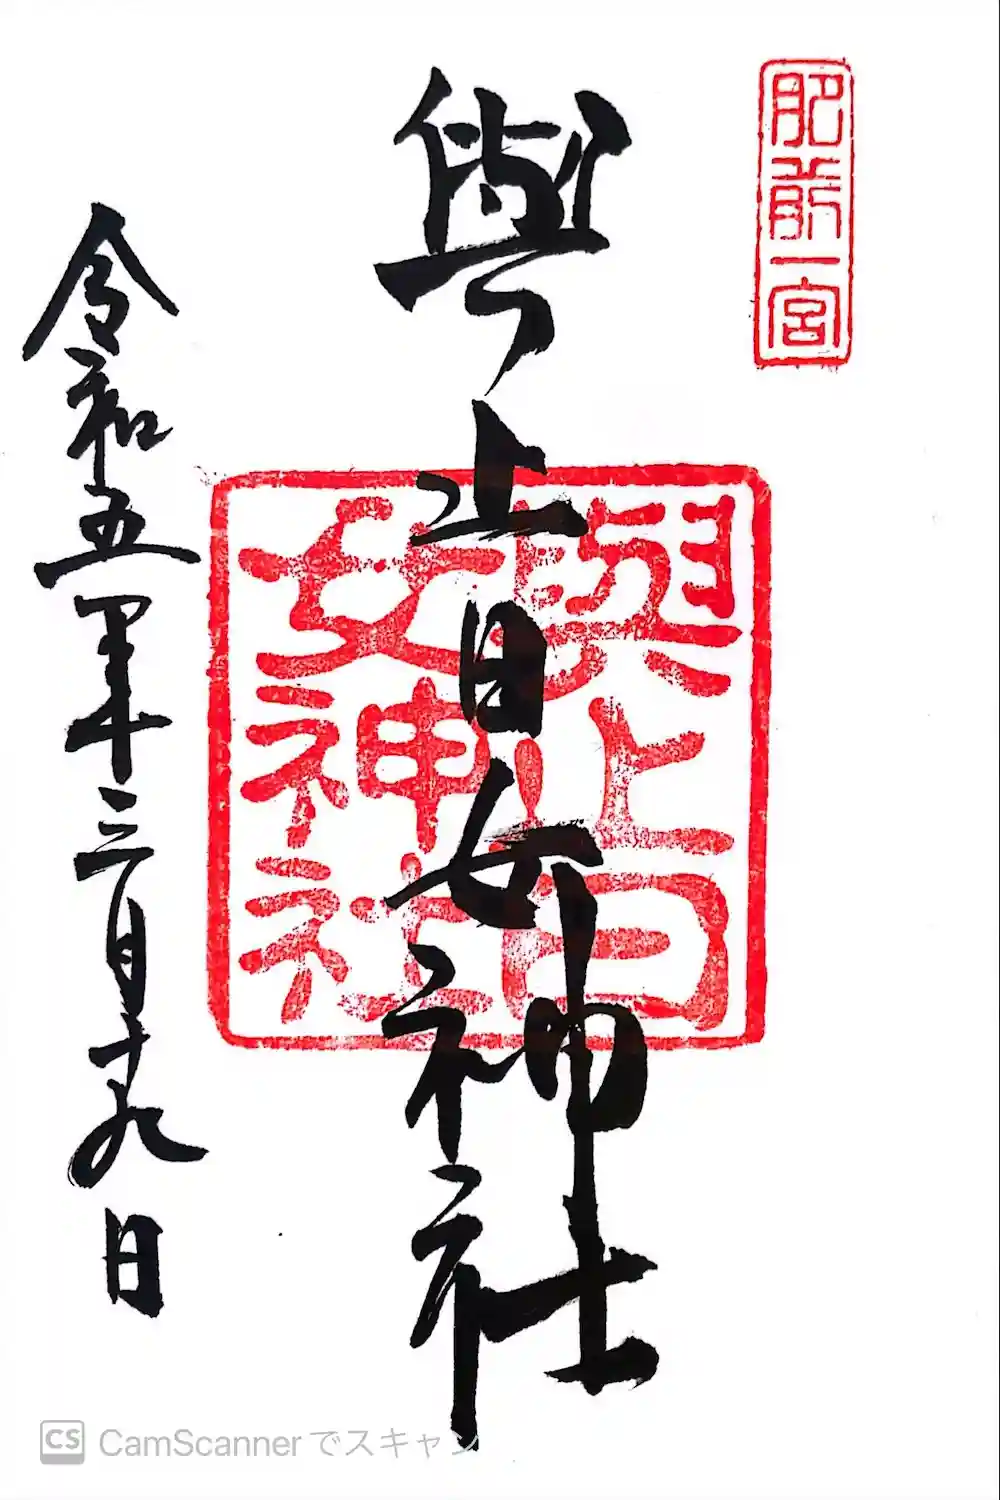 肥前一宮
與止日女神社
與止日女神社
令和五年三月十九日
CS CamScannerでスキャン